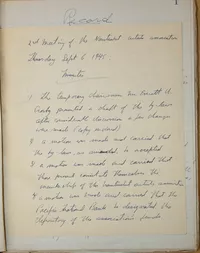 1
Record
2nd Meeting of the Nantucket artists association
Thursday Sept. 6 1945.
Minutes
1 The temporary chairman Mr
presented a draft of the by-laws
after discussion a few changes
was made (copy enclosed)
2 a motion was made and carried that
the by-laws as amended be accepted
3 a motion was made and carried that
those present constitute themselves the
membership of the Nantucket artists association
4 a motion was made and carried that the
Pacific National Bank be designated the
depository of the associations funds